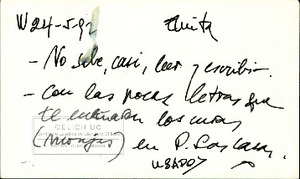 W24-5-92 Anita
- No sabe, casi, leer y escribir.
- Con las pocas letras que
te enseñaron los curas
(monjes) en P. Las Casas.
CELICH UC